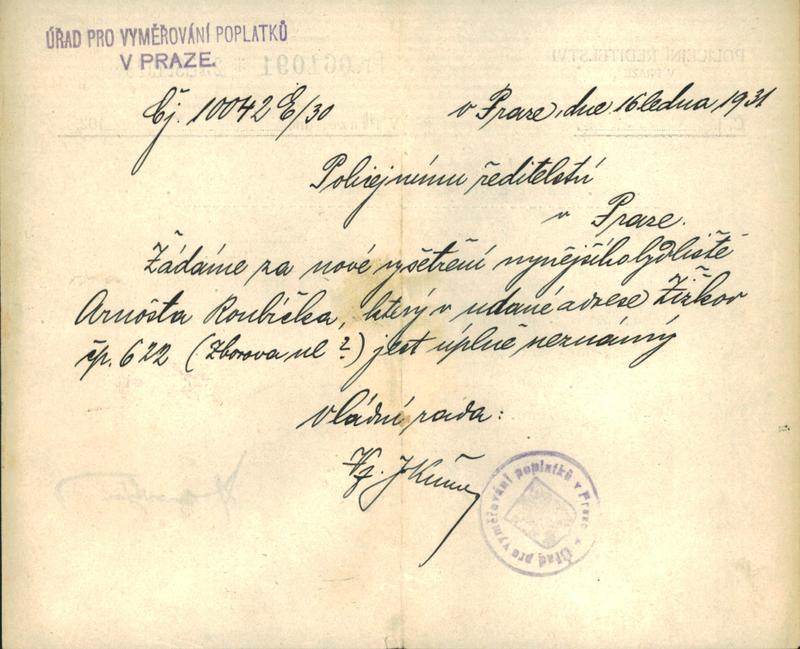 ÚŘAD PRO VYMĚŘOVÁNÍ POPLATKŮ
V PRAZE.
Čj. 10042 E/30
v Praze, dne 16 ledna, 1931
Policejnímu ředitelství
v Praze.
Žádáme za nové vyšetření nynějšího bydliště
Arnošta Roubíčka, který v udané adrese Žižkov
čp. 622 (Zborova ul ?) jest úplně neznámý
Vládní rada:
Úřad pro vyměřování poplatků v Praze